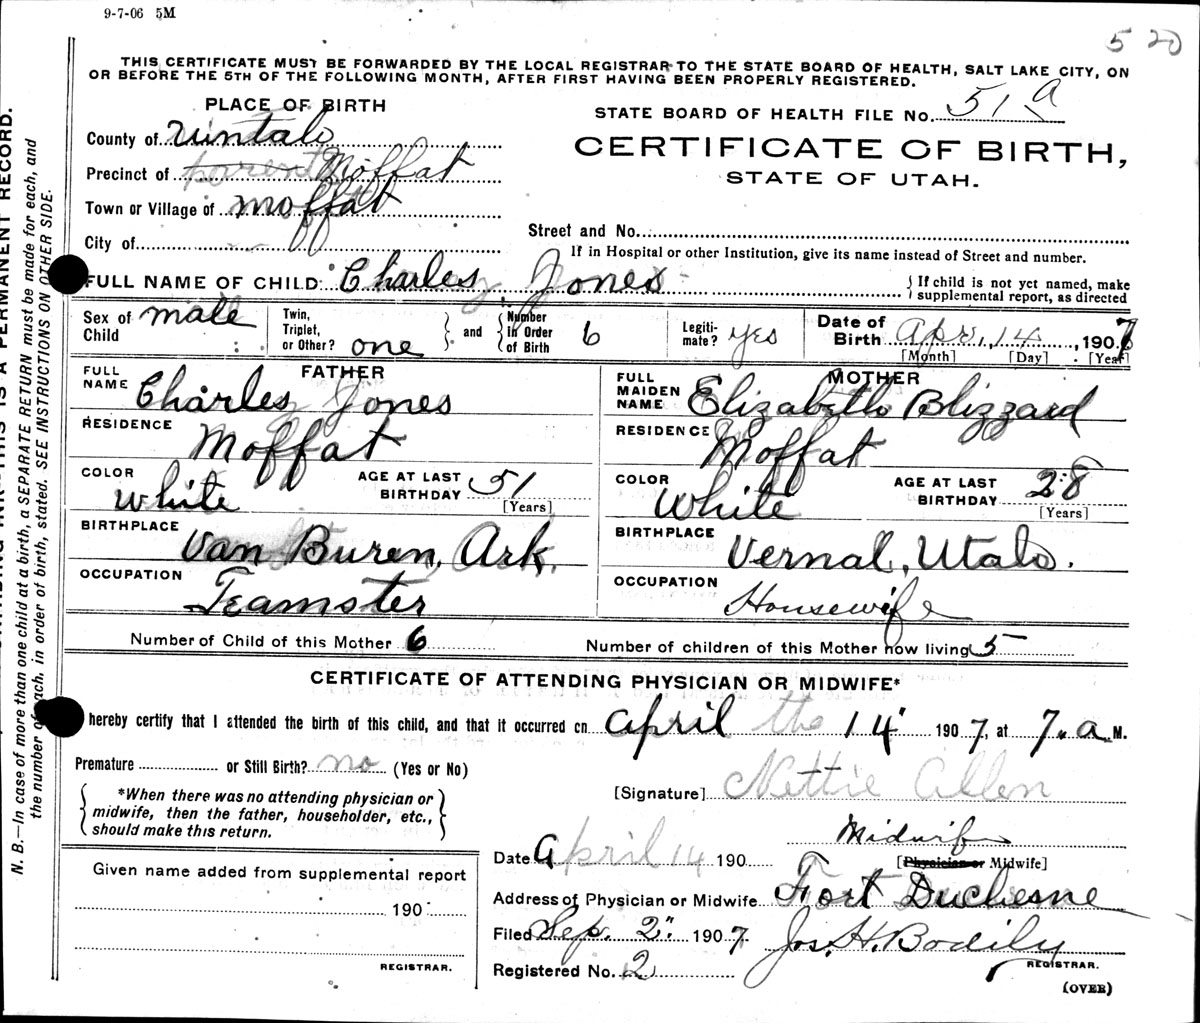 9-7-06 5M
5 20
THIS CERTIFICATE MUST BE FORWARDED BY THE LOCAL REGISTRAR TO THE STATE BOARD OF HEALTH, SALT LAKE CITY, ON
OR BEFORE THE 5TH OF THE FOLLOWING MONTH, AFTER FIRST HAVING BEEN PROPERLY REGISTERED.
PLACE OF BIRTH
STATE BOARD OF HEALTH FILE No. 51 a
County of Uintah
CERTIFICATE OF BIRTH,
STATE OF UTAH.
Precinct of Moffat
Town or Village of Moffat
City of
Street and No.
If in Hospital or other Institution, give its name instead of Street and number.
FULL NAME OF CHILD: Charles Jones
If child is not yet named, make
supplemental report, as directed
Sex of Child male Twin, Triplet, or Other? one and Number in Order of Birth 6 Legiti-mate? yes Date of Birth Apr. 14, 1907
[Month] [Day] [Year]
FATHER
FULL NAME Charles Jones
RESIDENCE Moffat
COLOR White AGE AT LAST BIRTHDAY 51
[Years]
BIRTHPLACE Van Buren, Ark.
OCCUPATION Teamster
MOTHER
FULL MAIDEN NAME Elizabeth Blizzard
RESIDENCE Moffat
COLOR White AGE AT LAST BIRTHDAY 28
[Years]
BIRTHPLACE Vernal, Utah.
OCCUPATION Housewife
Number of Child of this Mother 6 Number of children of this Mother now living 5
CERTIFICATE OF ATTENDING PHYSICIAN OR MIDWIFE*
hereby certify that I attended the birth of this child, and that it occurred on April the 14 1907, at 7. a M.
Premature or Still Birth? no (Yes or No)
[Signature] Nettie Allen
*When there was no attending physician or
midwife, then the father, householder, etc.,
should make this return.
Midwife
[Physician or Midwife]
Date April 14 190
Given name added from supplemental report
190
REGISTRAR.
Address of Physician or Midwife Fort Duchesne
Filed Sep. 2. 1907. Jos. H. Bodily
REGISTRAR.
Registered No. 2
(OVER)
THIS IS A PERMANENT RECORD.
N. B.—In case of more than one child at a birth, a SEPARATE RETURN must be made for each, and
the number of each, in order of birth, stated. SEE INSTRUCTIONS ON OTHER SIDE.